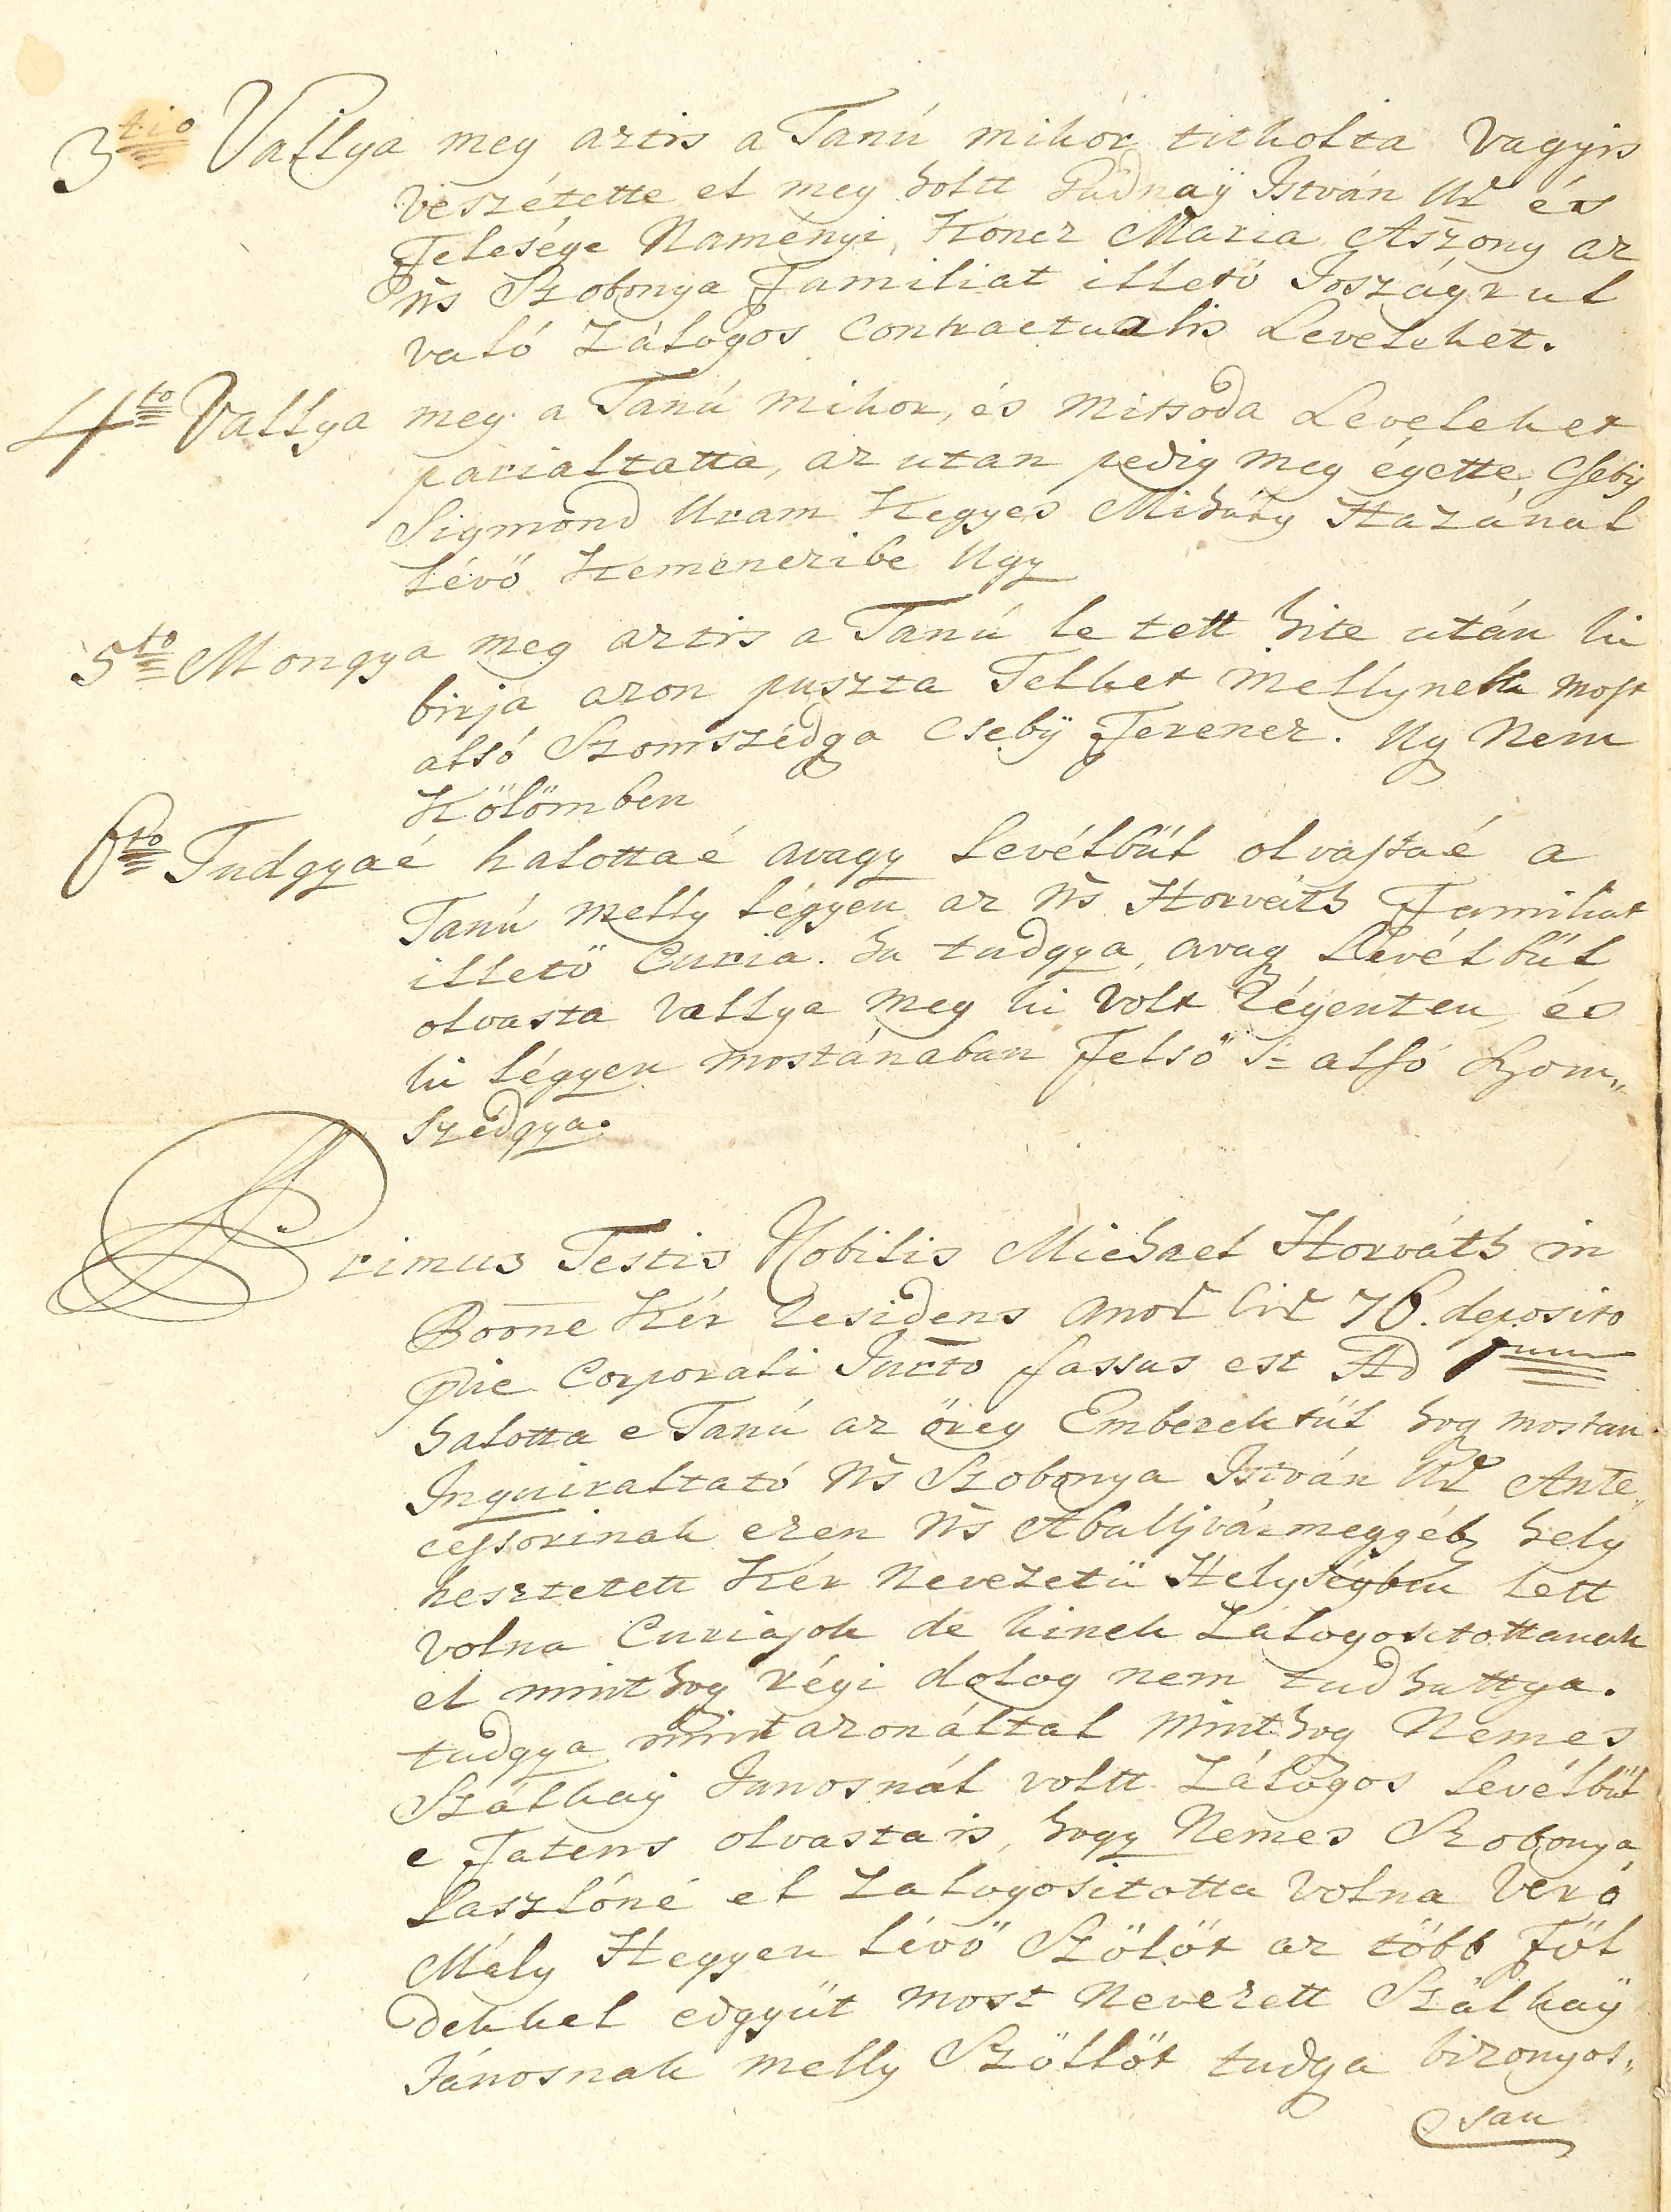 3tio Vallya meg aztis a Tanú mikor titkolta vagyis
veszétette el meg holtt Pádnaÿ István Ur és
Felesége Naményi, Koncz Maria Aszony az
Ns Szobonya Familiat illető Joszágrul
való Zálogos Contractualis Leveleket.
4to Vallya meg a Tanú mikor, és mitsoda Leveleket
parialtatta, az utan pedig meg égette, Csebÿ
Sigmond Uram Hegyes Mihály Házánál
lévő Kemenczibe Ugy
5to Mongya meg aztis a Tanú le tett hite után ki
birja azon puszta Telket mellynek most
alsó Szomszédga Csebÿ Ferencz. Ug Nem
Kölömben
6to Tudgyaé halottaé avagy levélbűl olvastaé a
Tanú melly légyen az Ns Horváth Familiat
illető Curia. ha tudgya, avag Levélbűl
olvasta vallya meg ki volt régenten, és
ki légyen mostánában Felső s= alsó Szom„
szédgya.
Primus Testis Nobilis Michael Horváth in
Boone Kér Residens Annor Cir 76. deposito
prie Corporali Jurto fassus est Ad 1mum
halotta e Tanú az öreg Emberektűl hog mostan
Inquiraltató Ns Szobonya István Ur Ante„
cessorinak ezen Ns Abaujvármeggyéb hely
heztetett Kér Nevezetü Helységben lett
volna Curiajok de kinek Zálogositottanak
el mint hog régi dolog nem tudhattya.
tudgya mint azonáltal mint hog Nemes
Szálkaÿ Janosnál voltt Zálogos levélbűl
e Fatens olvasta is, hogy Nemes Szobonya
Laszlóné el Zalogositotta volna Veró
Mály Hegyen lévő Szölöt az több Föl
dekkel edgyüt most Nevezett Szálkaÿ
Jánosnak melly Szöllöt tudga bizonyos„
san